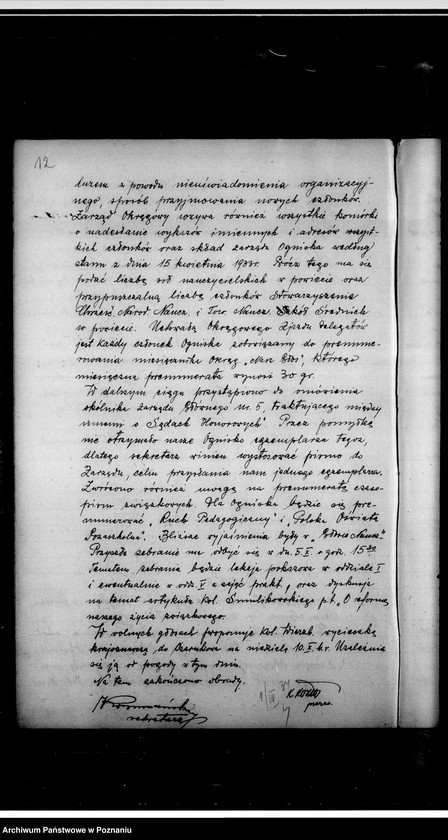 12
luzem z powodu nieuświadomienia organizacyj-
nego, sposób przyjmowania nowych członków.
Zarząd Okręgowy wzywa również wszystkie komórki
o nadesłanie wykazów imiennych i adresów wszyst-
kich członków oraz skład zarządu Ogniska według
stanu z dnia 15 kwietnia 193 r. Prócz tego ma się
podać liczbę sił nauczycielskich w powiecie oraz
przypuszczalną liczbę członków Stowarzyszenia
Chrześc. Narod. Naucz. i Tow. Naucz. Szkół Średnich
w powiecie. Uchwałą Okręgowego Zjazdu Delegatów
jest każdy członek Ogniska zobowiązany do prenume-
rowania miesięcznika Okręg. „Nasz Głos", którego
miesięczna prenumerata wynosi 30 gr.
W dalszym ciągu przystąpiono do omówienia
okólnika Zarządu Głównego nr. 5, traktującego między
innemi o „Sądach Honorowych". Przez pomyłkę
nie otrzymało nasze Ognisko egzemplarza tegoż,
dlatego sekretarz winien wystosować pismo do
Zarządu, celem przysłania nam jednego egzemplarza.
Zwrócono również uwagę na prenumeratę czaso-
pism związkowych. Dla Ogniska będzie się pre-
numerować „Ruch Pedagogiczny" i „Polska Oświata
Pozaszkolna". Bliższe wyjaśnienia były w „Głosie Naucz."
Przyszłe zebranie ma odbyć się w dn. 5.X o godz. 15
Tematem zebrania będzie lekcja pokazowa w oddziale I
i ewentualnie w odz. V z zajęć prakt., oraz dyskusja
na temat artykułu Kol. Smulikowskiego p.t. „O reformę
naszego życia związkowego.
W wolnych głosach proponuje Kol. Wierzb. wycieczkę
krajoznawczą do na niedzielę 10.X. b.r. Uzależnia
się ją od pogody w tym dniu.
Na tem zakończono obrady.
sekretarz
prezes
Archiwum Państwowe w Poznaniu